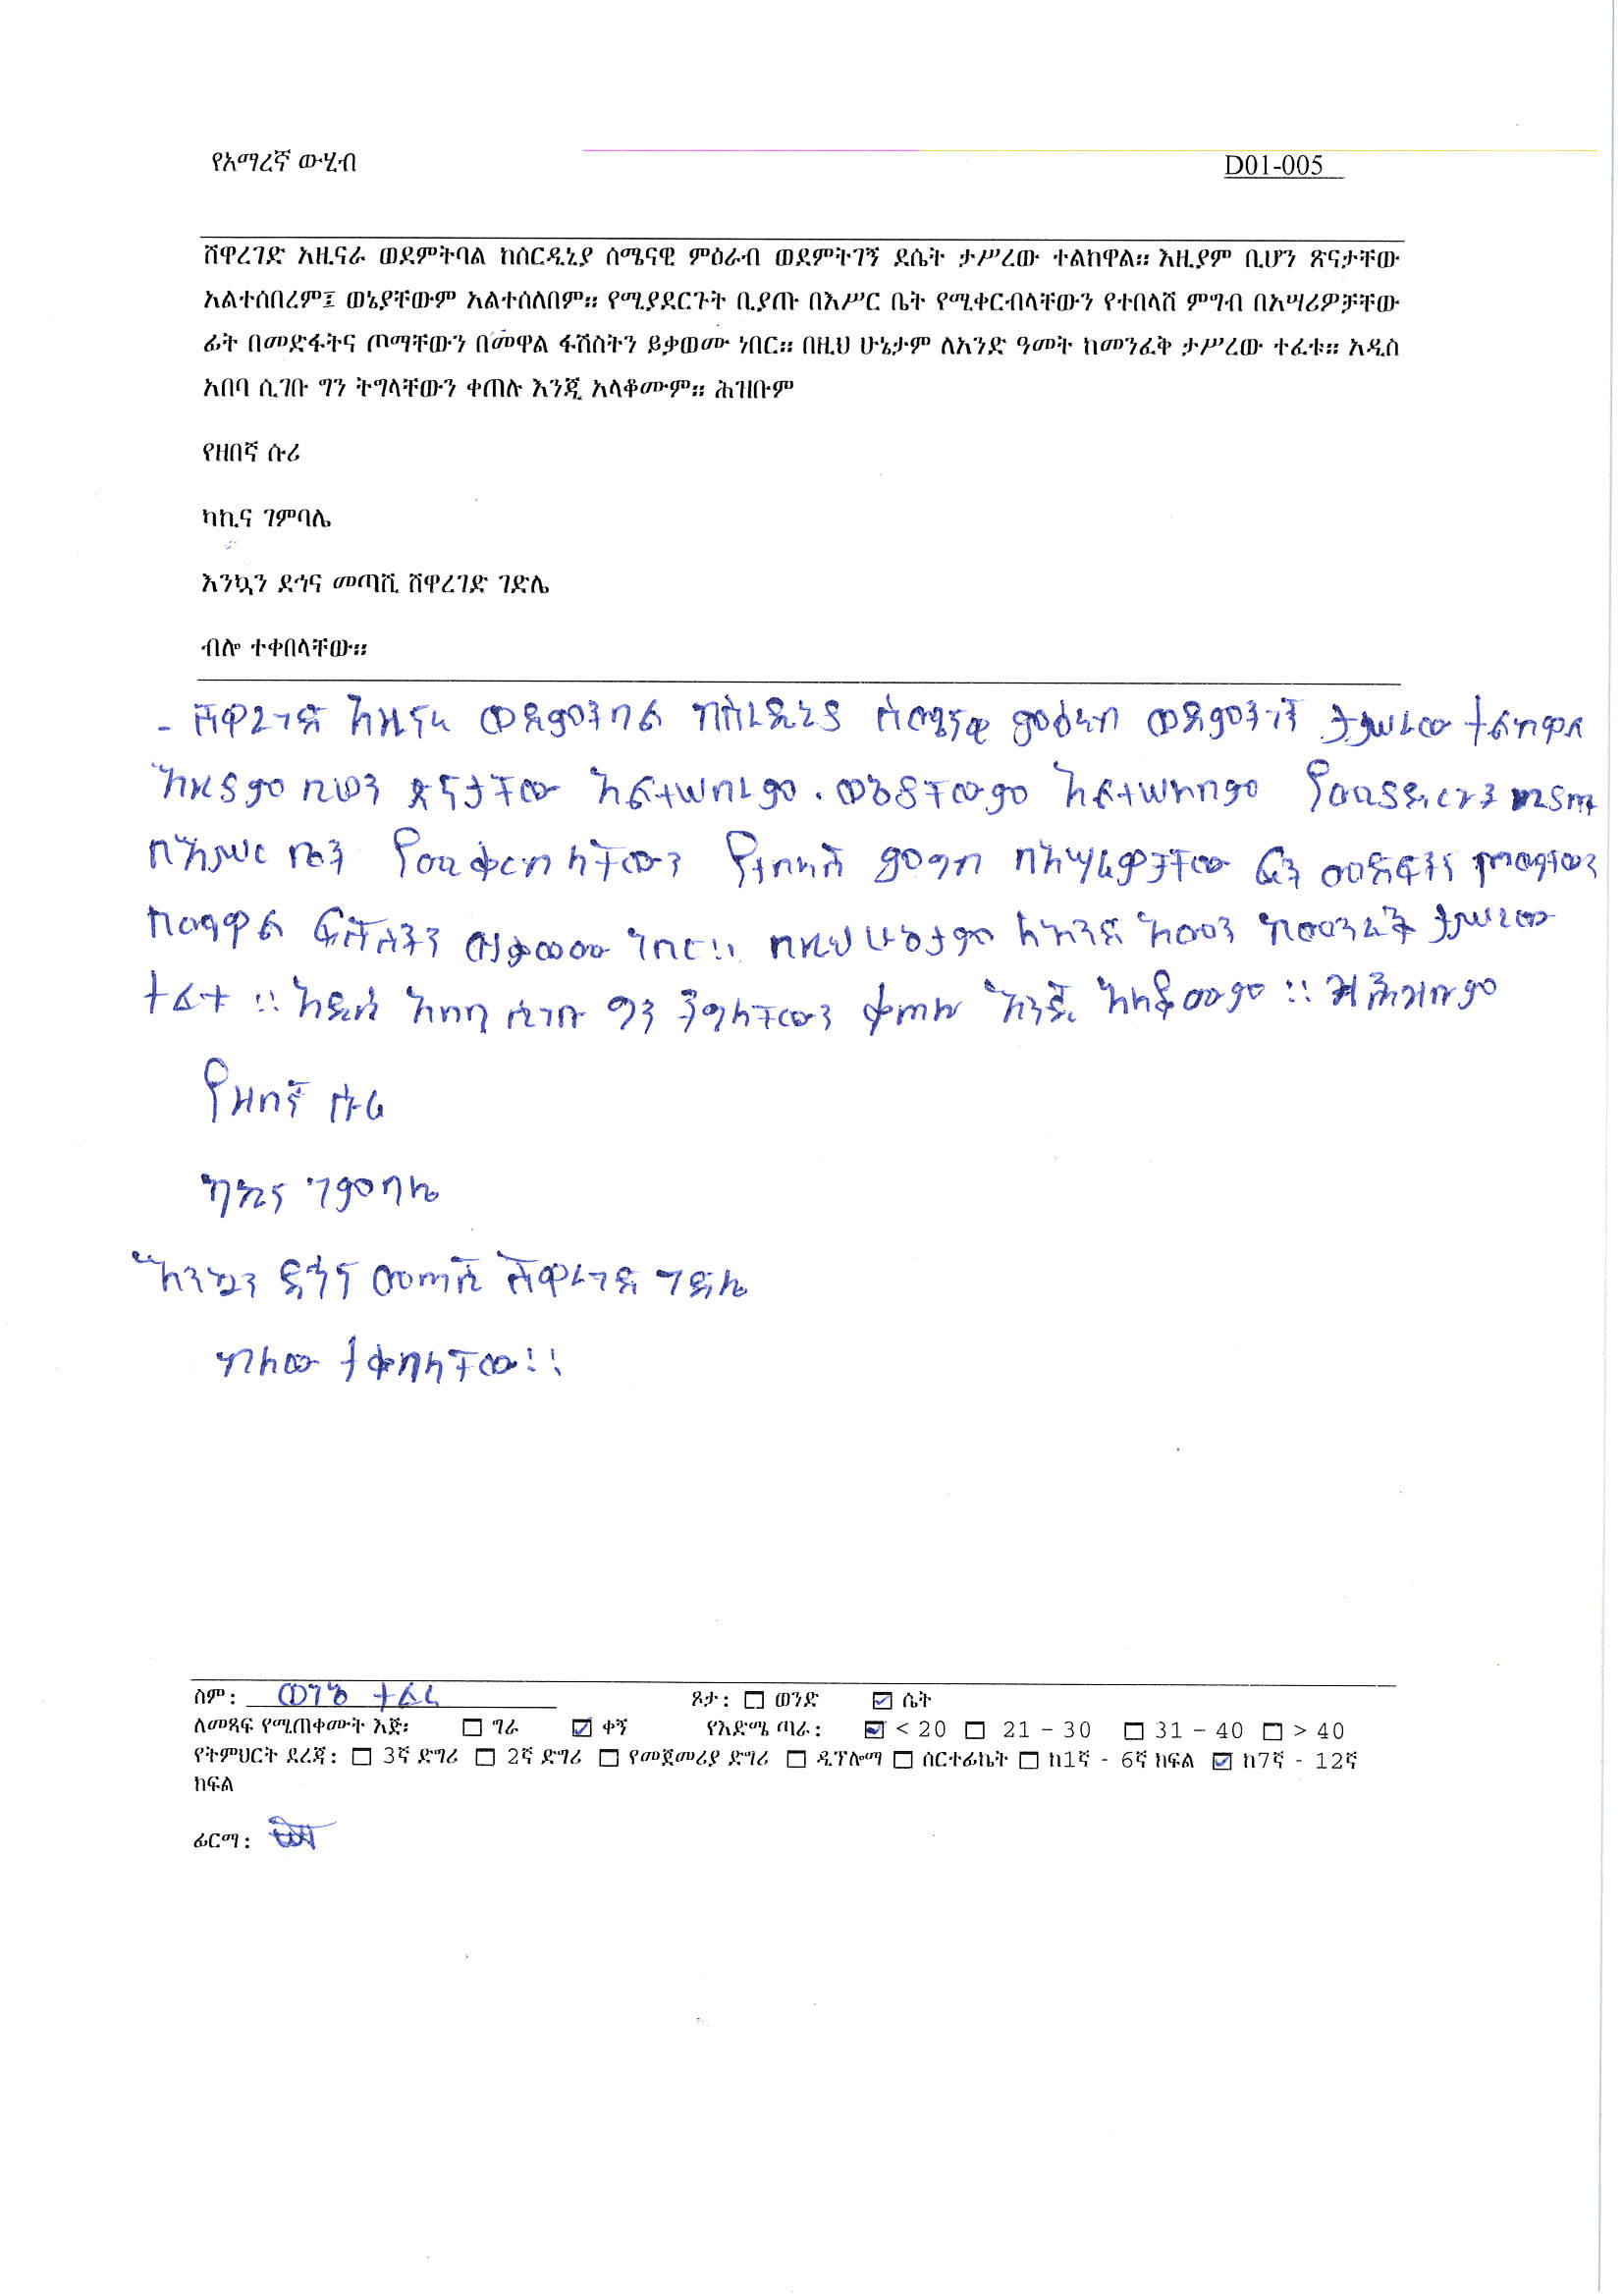 የአማረኛ ውሂብ D01-005
ሸዋረገድ አዚናራ ወደምትባል ከሰርዲኒያ ሰሜናዊ ምዕራብ ወደምትገኝ ደሴት ታሥረው ተልከዋል። እዚያም ቢሆን ጽናታቸው
አልተሰበረም፤ ወኔያቸውም አልተሰለበም። የሚያደርጉት ቢያጡ በእሥር ቤት የሚቀርብላቸውን የተበላሸ ምግብ በአሣሪዎቻቸው
ፊት በመድፋትና ጦማቸውን በመዋል ፋሽስትን ይቃወሙ ነበር። በዚህ ሁኔታም ለአንድ ዓመት ከመንፈቅ ታሥረው ተፈቱ። አዲስ
አበባ ሲገቡ ግን ትግላቸውን ቀጠሉ እንጂ አላቆሙም። ሕዝቡም
የዘበኛ ሱሪ
ካኪና ገምባሌ
እንኳን ደኅና መጣሺ ሸዋረገድ ገድሌ
ብሎ ተቀበላቸው።
- ሸዋረገድ አዚናሪ ወደምትባል ከሰረዲኒያ ሰሜናዊ ምዕራብ ወደምትገኝ ታሥረው ተልከዋለ
እዚያም ቢሆን ጽናታቸው አልተሠበረም. ወኔያቸውም አልተሠለበም የሚያደርጉት ቢያጡ
በእሥር ቤት የሚቀርብላቸውን የተበላሸ ምግብ በአሣሪዎቻቸው ፊት መድፋትና ጦማቸውን
በመዋል ፍሸስትን ይቃወሙ ነበር።። በዚህ ሁኔታም ለአንድ አመት ከመንፈቅ ታሥረው
ተፈተ ።። አዲስ አበባ ሲገቡ ግን ትግላቸውን ቀጠሉ እንጂ አላቆሙም ።። ሕዝቡም
የዘበኛ ሱሪ
ካኪና ገምባሌ
እንኳን ደኅና መጣሺ ሸዋረገድ ገድሌ
ብለው ተቀበላቸው።።
ስም: ወገኔ ተፈሪ ጾታ: ☐ ወንድ ☑ ሴት
ለመጻፍ የሚጠቀሙት እጅ፡ ☐ ግራ ☑ ቀኝ የእድሜ ጣራ: ☑ < 20 ☐ 21 – 30 ☐ 31 – 40 ☐ > 40
የትምህርት ደረጃ: ☐ 3ኛ ድግሪ ☐ 2ኛ ድግሪ ☐ የመጀመሪያ ድግሪ ☐ ዲፕሎማ ☐ ሰርተፊኬት ☐ ከ1ኛ - 6ኛ ክፍል ☑ ከ7ኛ - 12ኛ
ክፍል
ፊርማ: